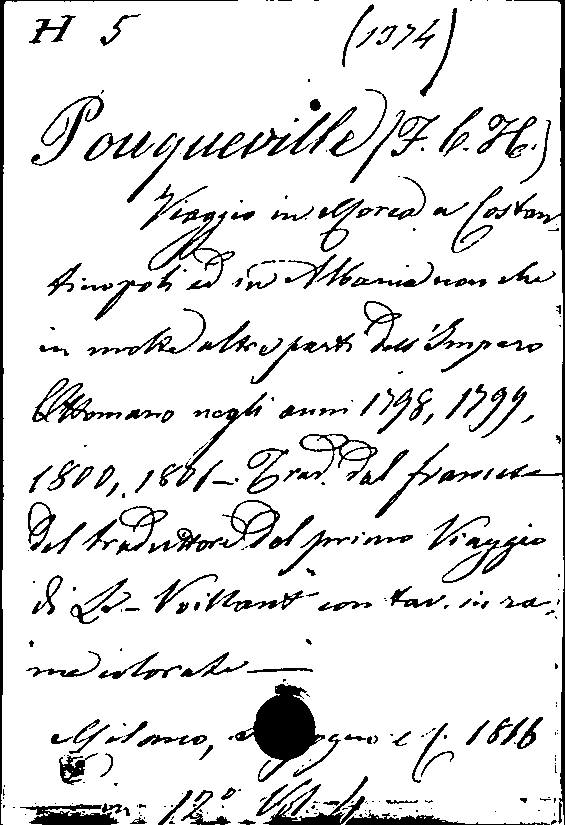 H 5 (1374)
Pouqueville (F. C. H.)
Viaggio in Morea a Costan-
tinopoli ed in Albania non che
in molte altre parti dell'Impero
Ottomano negli anni 1798, 1799,
1800, 1801 - Trad. dal francese
del traduttore del primo Viaggio
di Le-Vaillant con tav. in ra-
me colorate —
Milano, e f. 1816
in 12° Vol. 4